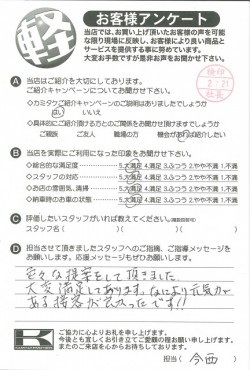 軽
お客様アンケート
当店では、お買い上げ頂いたお客様の声を可能
な限り現場に反映し、お客様により良い商品と
サービスを提供する事に努めています。
大変お手数ですが是非お声をお聞かせ下さい。
A 当店はご紹介を大切にしております。
ご紹介キャンペーンについてお聞かせ下さい。
◇カミタケご紹介キャンペーンのご説明はありましたでしょうか
はい いいえ
◇具体的にご紹介頂ける方とのご関係をお聞かせ頂けますでしょうか
ご親戚 ご友人 職場の方 機会があれば紹介したい
B 当店を実際にご利用になった印象をお聞かせ下さい。
◇総合的な満足度 5.大満足 4.満足 3.ふつう 2.やや不満 1.不満
◇スタッフの対応 5.大満足 4.満足 3.ふつう 2.やや不満 1.不満
◇お店の雰囲気、清掃 5.大満足 4.満足 3.ふつう 2.やや不満 1.不満
◇納車時のお車の状態 5.大満足 4.満足 3.ふつう 2.やや不満 1.不満
C 評価したいスタッフがいれば教えてください。
スタッフ名( )( )
D 担当させて頂きましたスタッフへのご指摘、ご指導メッセージを
お願いします。応援メッセージもぜひお願いします。
色々な提案をして頂きました
大変満足しております。なにより元気が
ある接客が良かったです!!
K
ご協力に心よりお礼を申し上げます。
今後とも宜しくお引き立てご愛顧の程お願い申し上げます。
またのご来店を心からお待ちしております。
担当( 今西 )